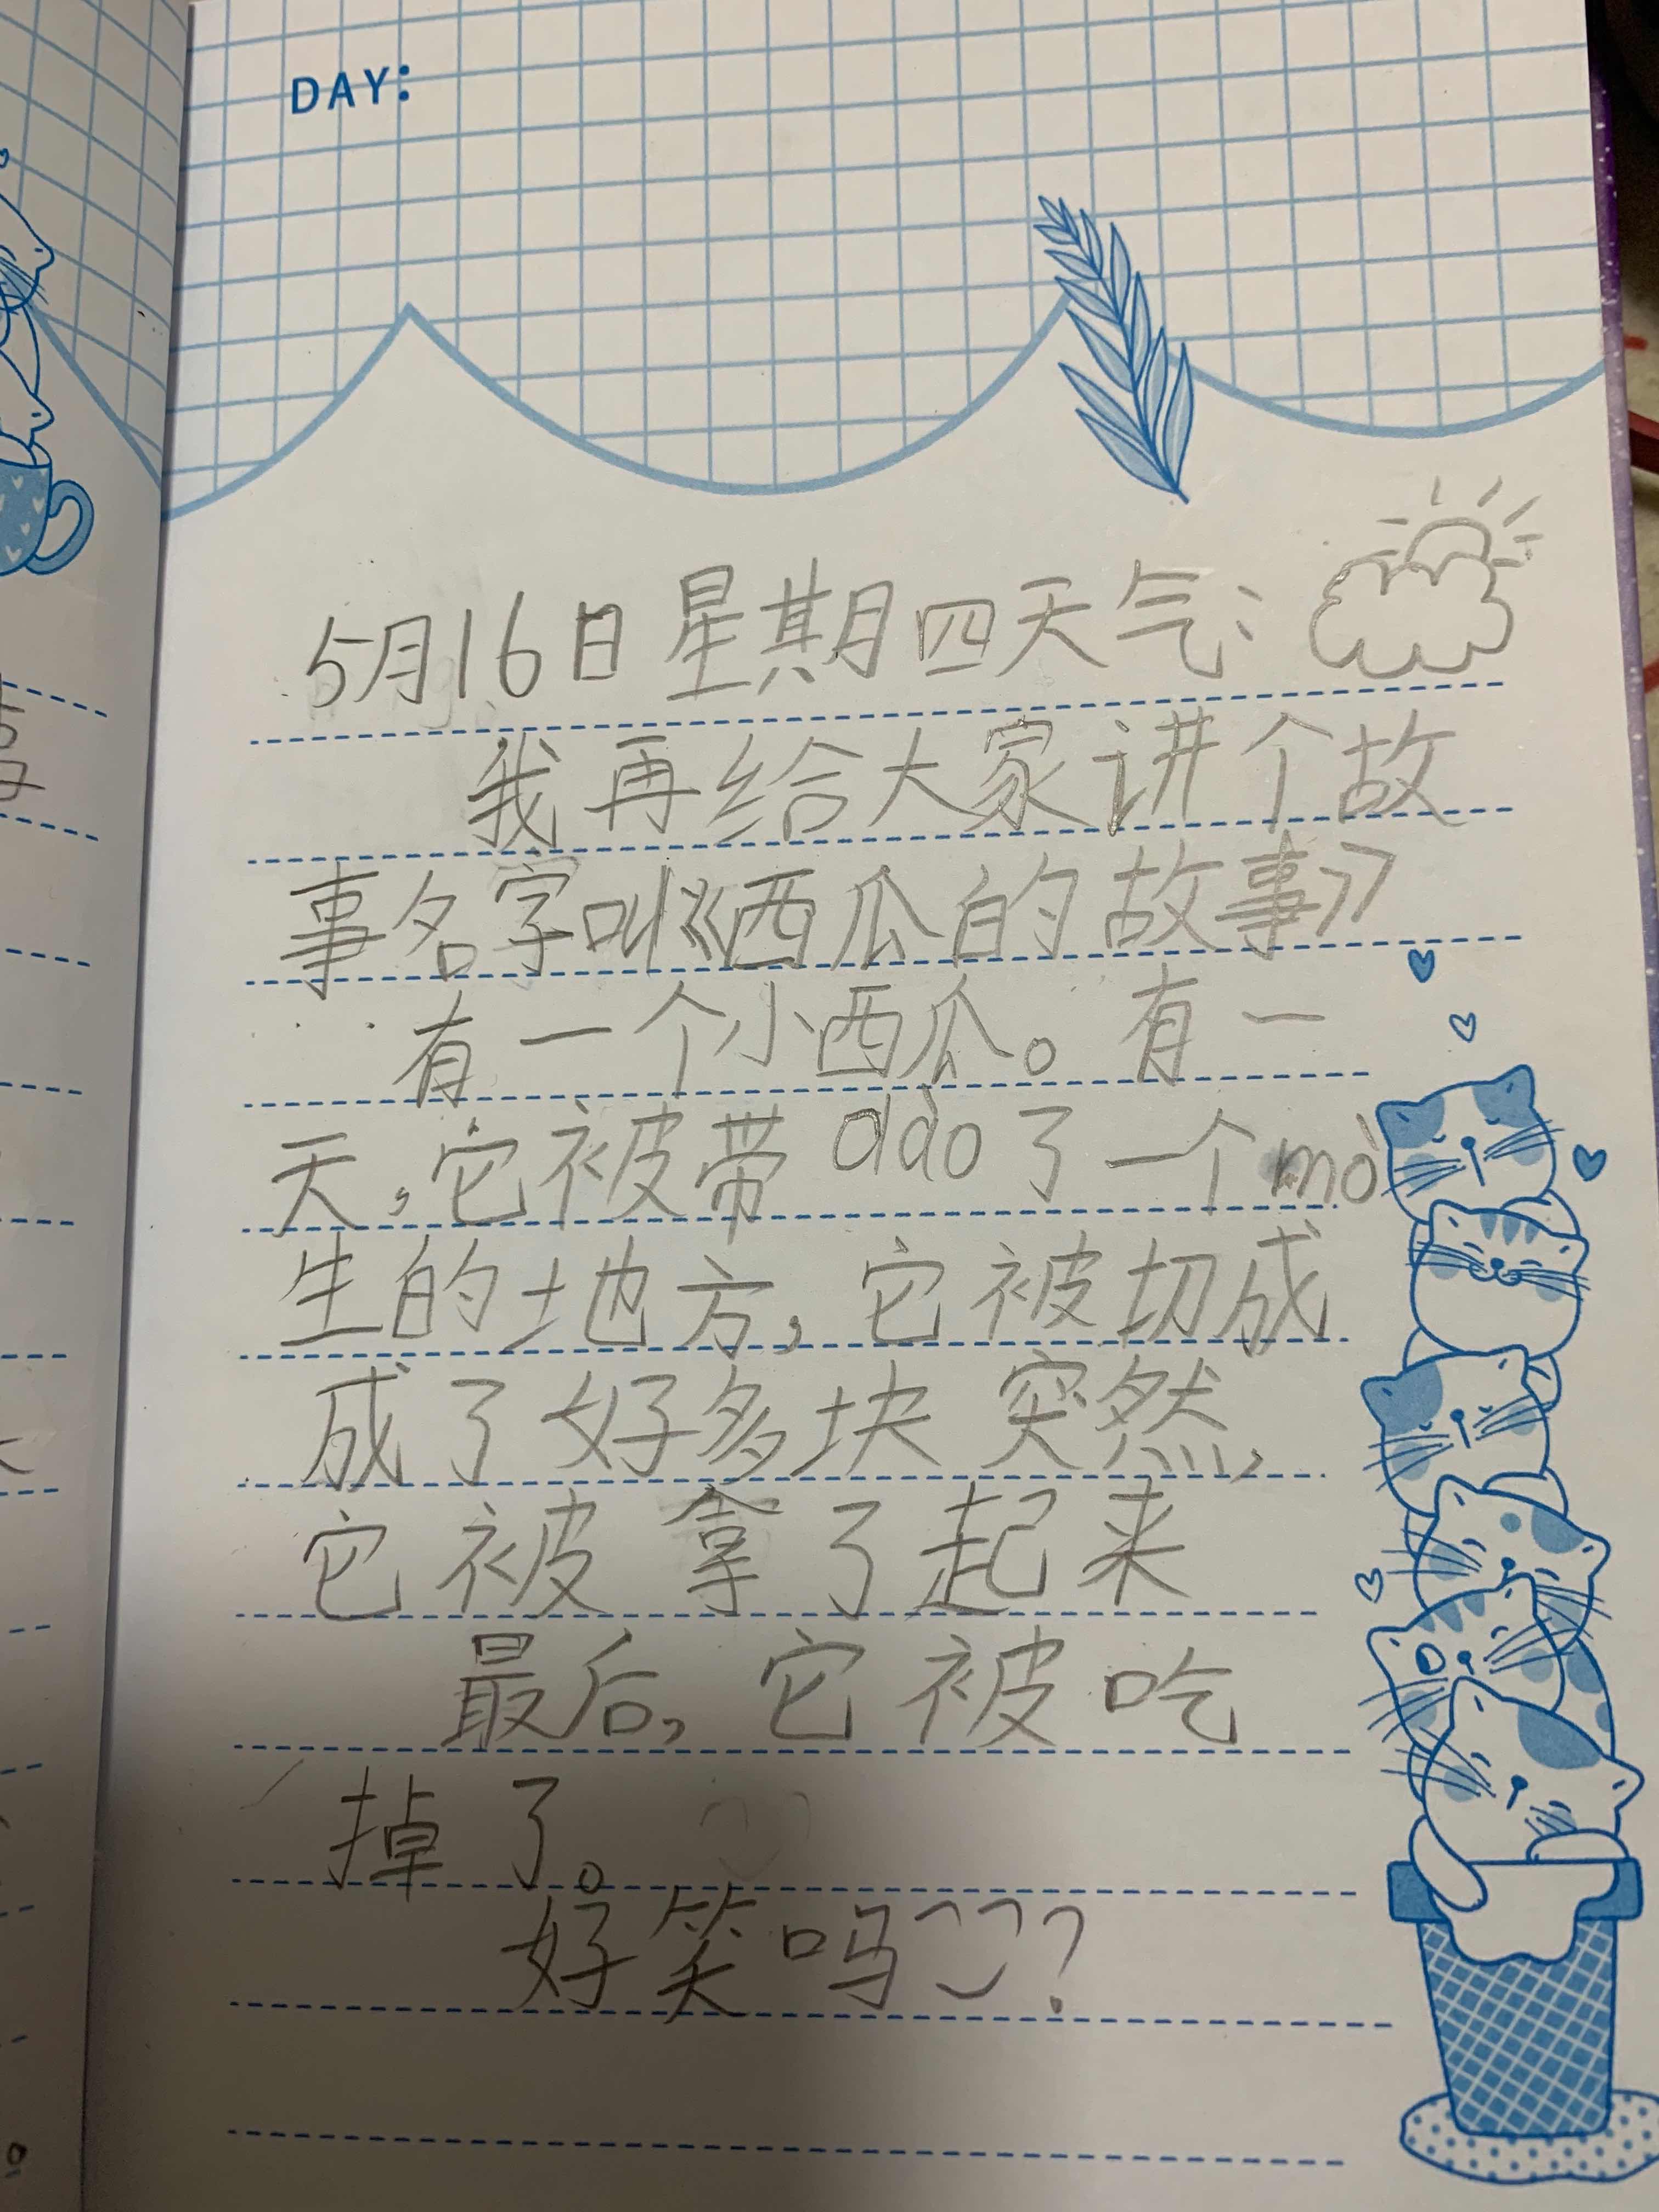 DAY:
5月16日星期四天气:
我再给大家讲个故
事名字叫《西瓜的故事》
有一个小西瓜。有一
天,它被带dào了一个mò
生的地方,它被切成
成了好多块 突然,
它被拿了起来
最后,它被吃
掉了。
好笑吗?